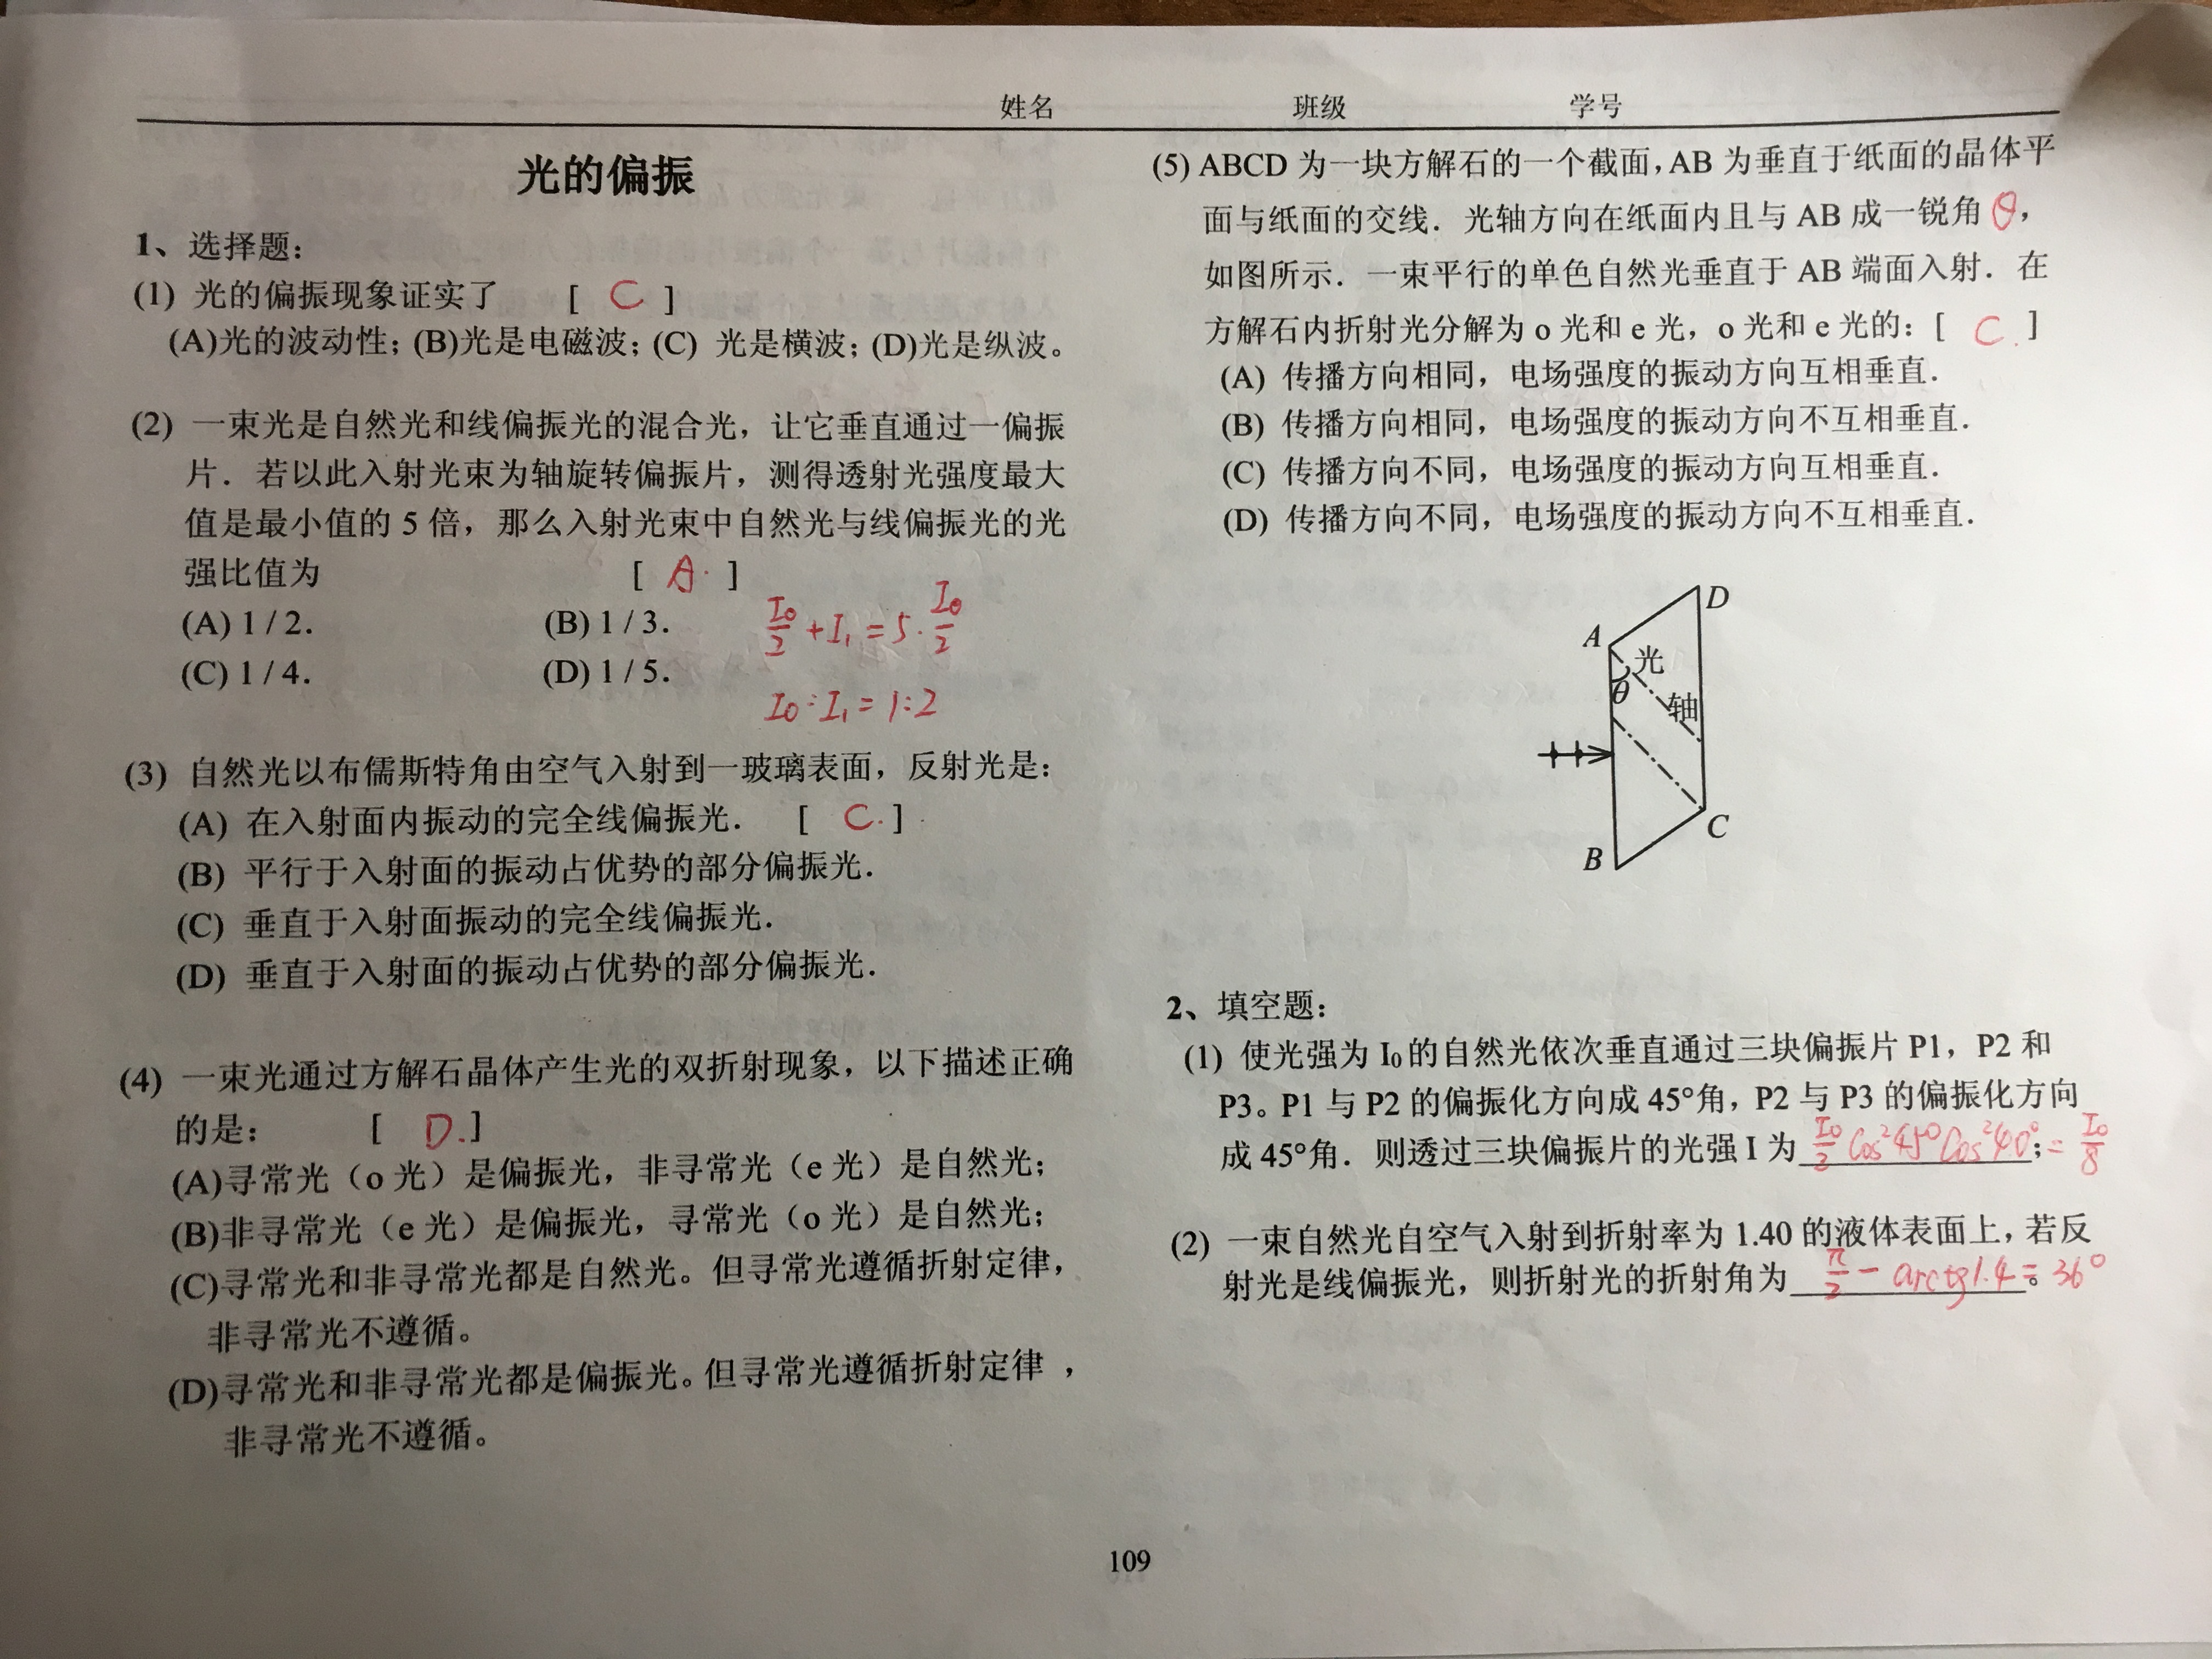 姓名 班级 学号
光的偏振
1、选择题：
(1) 光的偏振现象证实了 [ C ]
(A)光的波动性；(B)光是电磁波；(C) 光是横波；(D)光是纵波。
(2) 一束光是自然光和线偏振光的混合光，让它垂直通过一偏振
片．若以此入射光束为轴旋转偏振片，测得透射光强度最大
值是最小值的 5 倍，那么入射光束中自然光与线偏振光的光
强比值为 [ A. ]
(A) 1 / 2. (B) 1 / 3.
(C) 1 / 4. (D) 1 / 5.
I₀/2 + I₁ = 5 · I₀/2
I₀ : I₁ = 1:2
(3) 自然光以布儒斯特角由空气入射到一玻璃表面，反射光是：
(A) 在入射面内振动的完全线偏振光． [ C. ]
(B) 平行于入射面的振动占优势的部分偏振光．
(C) 垂直于入射面振动的完全线偏振光．
(D) 垂直于入射面的振动占优势的部分偏振光．
(4) 一束光通过方解石晶体产生光的双折射现象，以下描述正确
的是： [ D. ]
(A)寻常光（o 光）是偏振光，非寻常光（e 光）是自然光；
(B)非寻常光（e 光）是偏振光，寻常光（o 光）是自然光；
(C)寻常光和非寻常光都是自然光。但寻常光遵循折射定律，
非寻常光不遵循。
(D)寻常光和非寻常光都是偏振光。但寻常光遵循折射定律，
非寻常光不遵循。
(5) ABCD 为一块方解石的一个截面，AB 为垂直于纸面的晶体平
面与纸面的交线．光轴方向在纸面内且与 AB 成一锐角 θ，
如图所示．一束平行的单色自然光垂直于 AB 端面入射．在
方解石内折射光分解为 o 光和 e 光，o 光和 e 光的：[ C. ]
(A) 传播方向相同，电场强度的振动方向互相垂直．
(B) 传播方向相同，电场强度的振动方向不互相垂直．
(C) 传播方向不同，电场强度的振动方向互相垂直．
(D) 传播方向不同，电场强度的振动方向不互相垂直．
D
A
光
θ
轴
C
B
2、填空题：
(1) 使光强为 I₀ 的自然光依次垂直通过三块偏振片 P1，P2 和
P3。P1 与 P2 的偏振化方向成 45°角，P2 与 P3 的偏振化方向
成 45°角．则透过三块偏振片的光强 I 为 I₀/2 cos²45° cos²40° ; = I₀/8
(2) 一束自然光自空气入射到折射率为 1.40 的液体表面上，若反
射光是线偏振光，则折射光的折射角为 π/2 - arctg1.4 = 36° 。
109